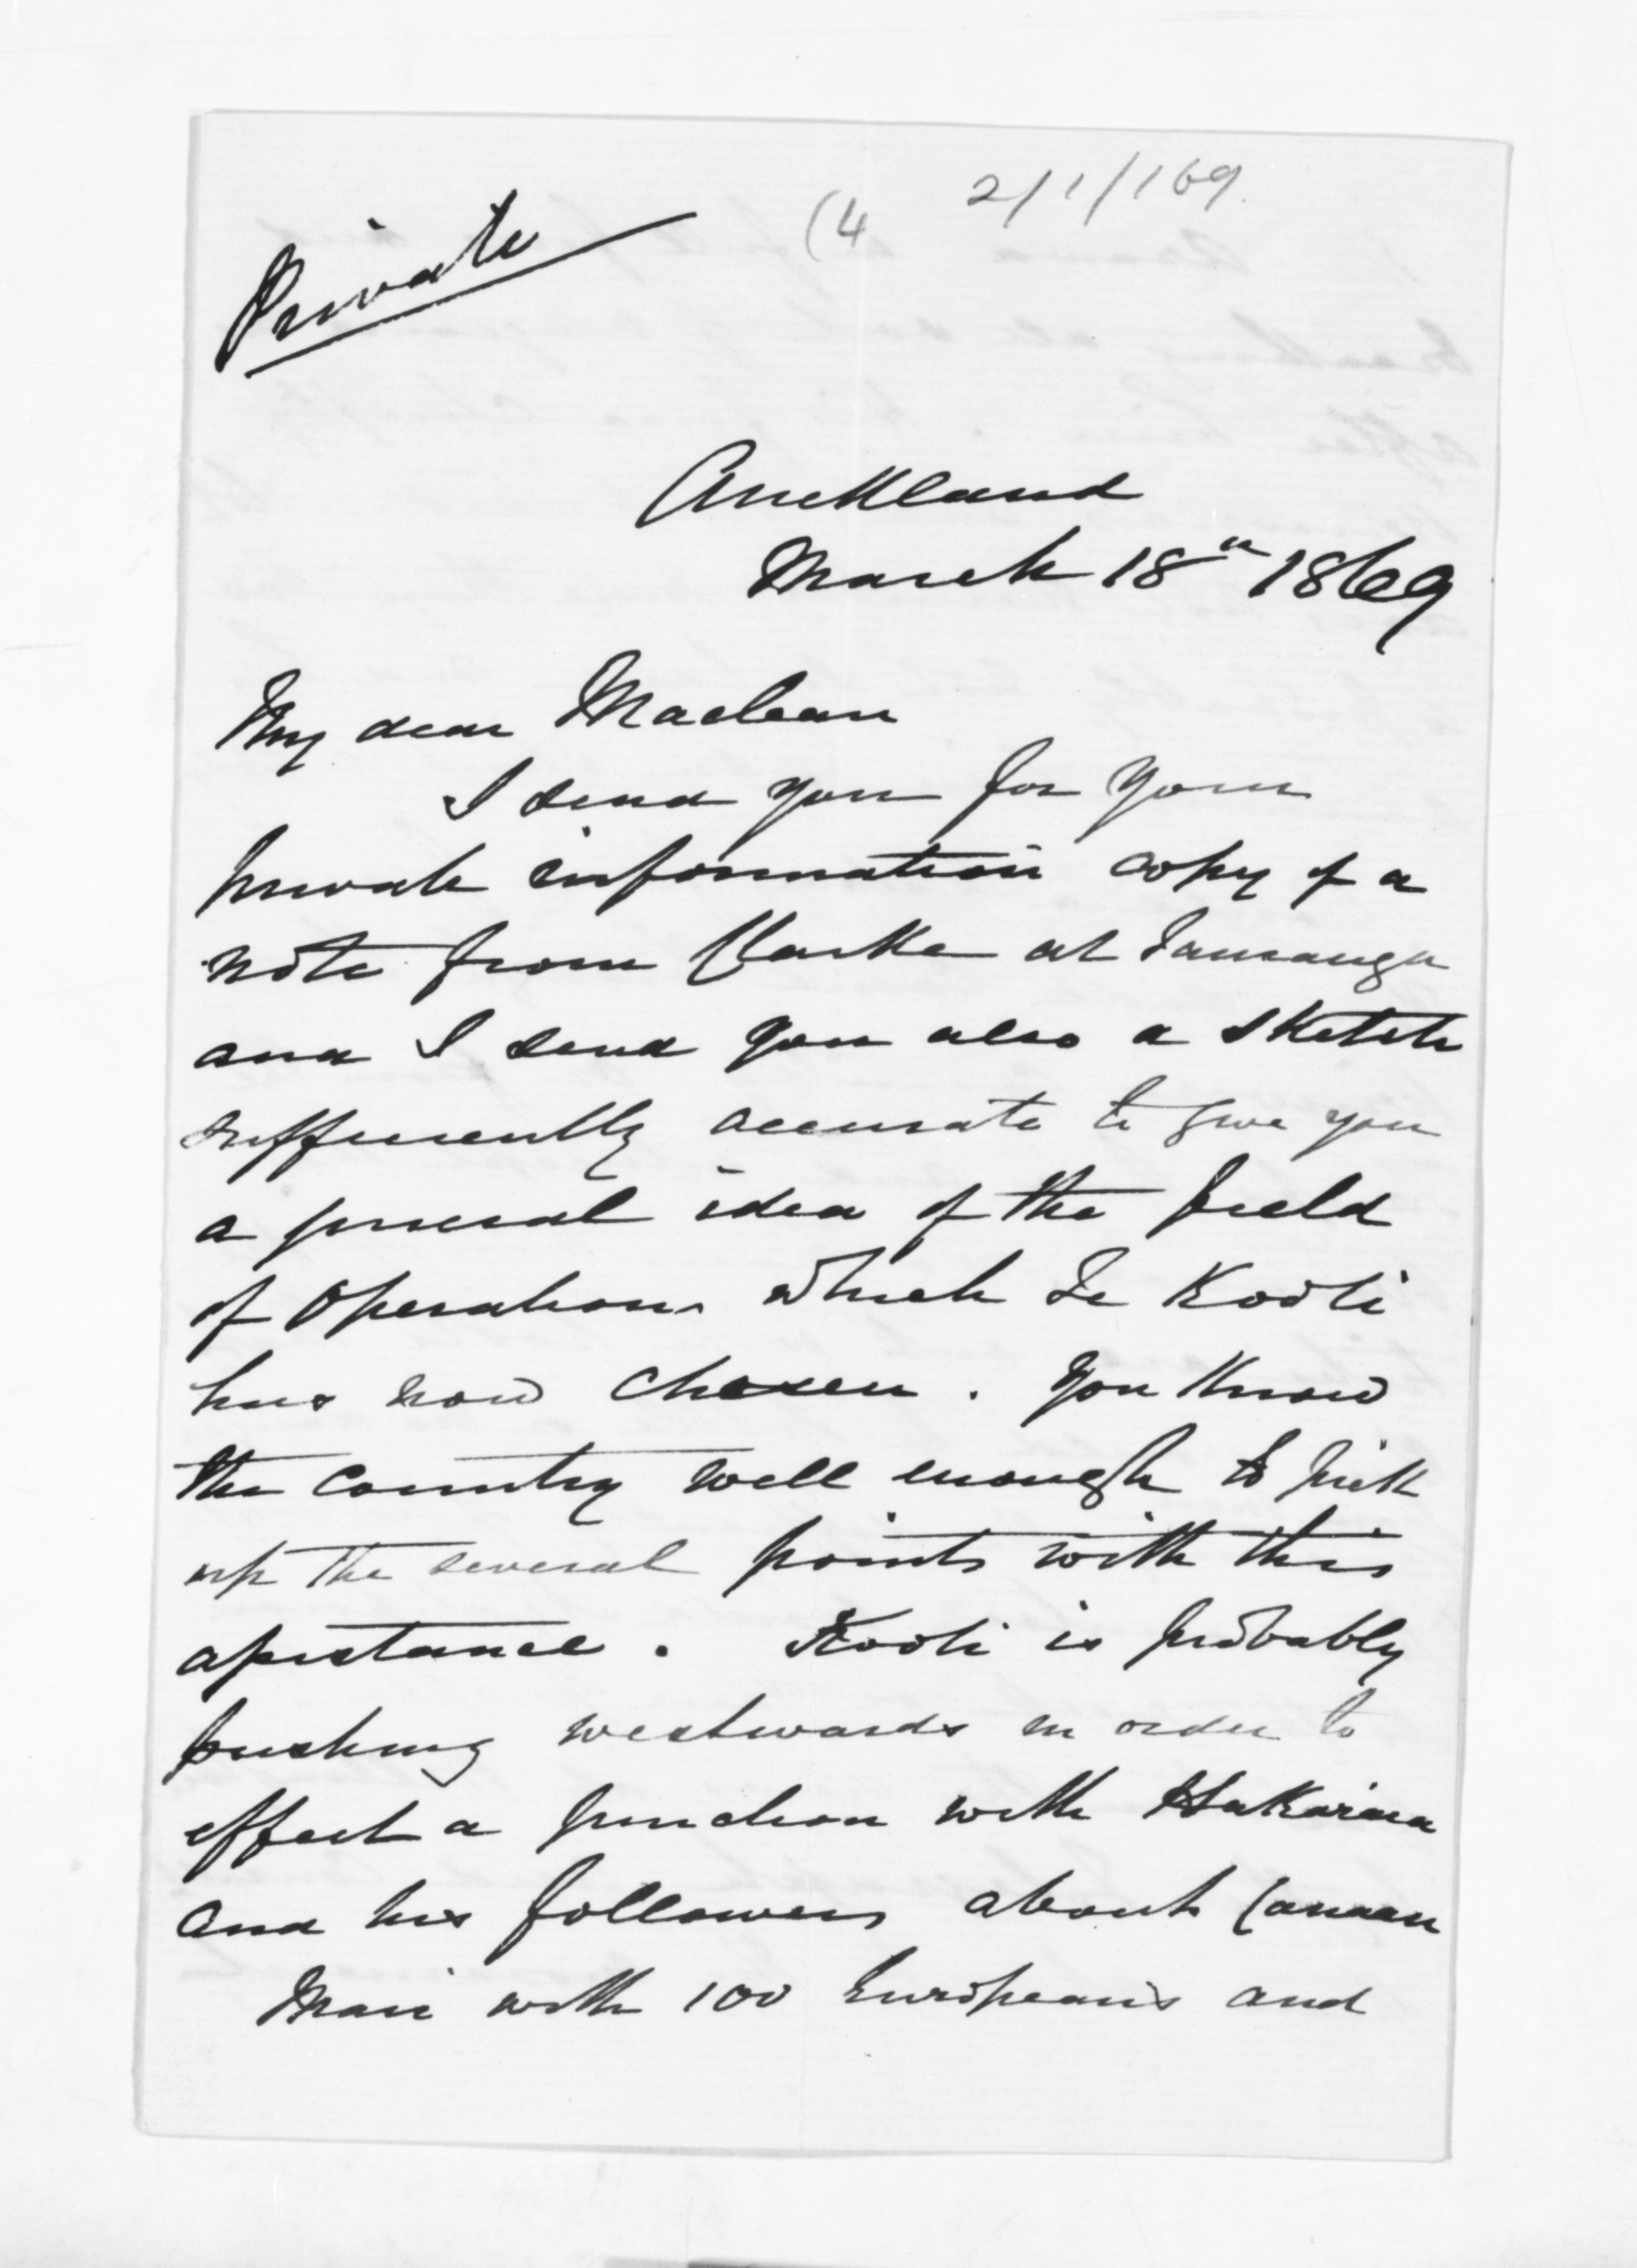 (4 2/1/169.
Private
Auckland
March 18th 1869
My dear Maclean
I send you for your
private information copy of a
note from Clarke at Tauranga
and I send you also a sketch
sufficiently accurate to give you
a general idea of the field
of operations which Te Kooti
has now chosen. You know
the country well enough to pick
up the several points with this
assistance. Kooti is probably
pushing westwards in order to
effect a junction with Hakaraia
and his followers about Canaan
Mair with 100 Europeans and